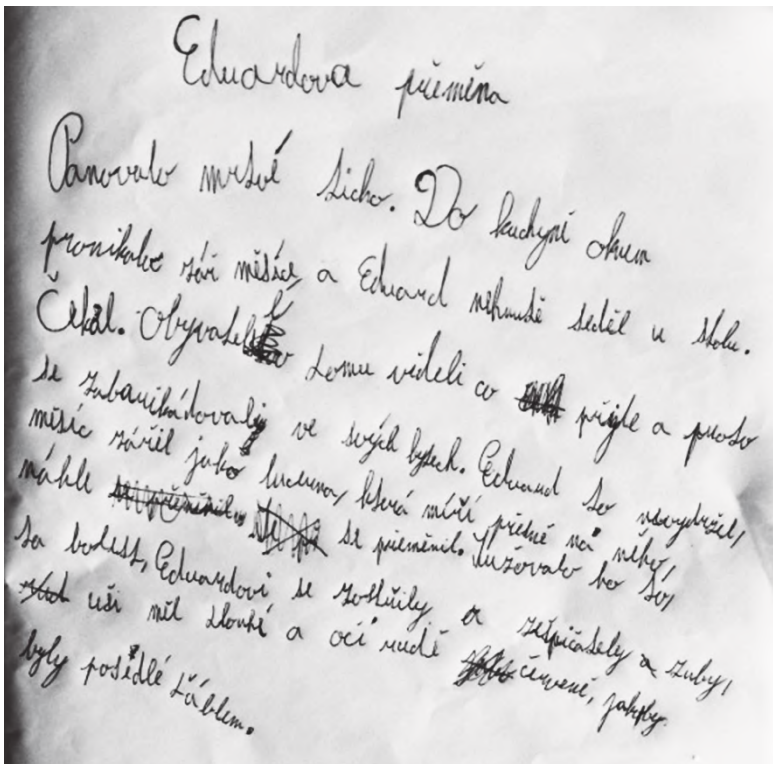 Eduardova přeměna
Panovalo mrtvé ticho. Do kuchyní oknem
pronikalo záři měsíce, a Eduard nehnutě seděl u stolu.
Čekal. Obyvatelé domu viděli co přijde a proto
se zabarikádovaly ve svých bytech. Eduard to nevydržel,
měsíc zářil jako lucerna, která míří přídně na něho,
náhle se přeměnil. Sužovalo ho to,
ta bolest, Eduardovi se zostřily a zešpičatěly a zuby,
uši měl dlouhé a oči rudě červené, jakoby
byly posedlé ďáblem.